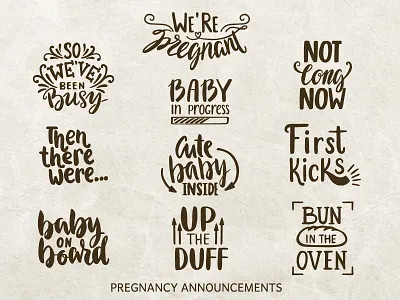 WE'RE
pregnant
SO
WE'VE
BEEN
Busy
BABY
in PROGRESS
NOT
long
NOW
Then
there
were...
Cute
baby
INSIDE
First
KICKS
baby
ON
board
UP
THE
DUFF
BUN
IN THE
OVEN
PREGNANCY ANNOUNCEMENTS